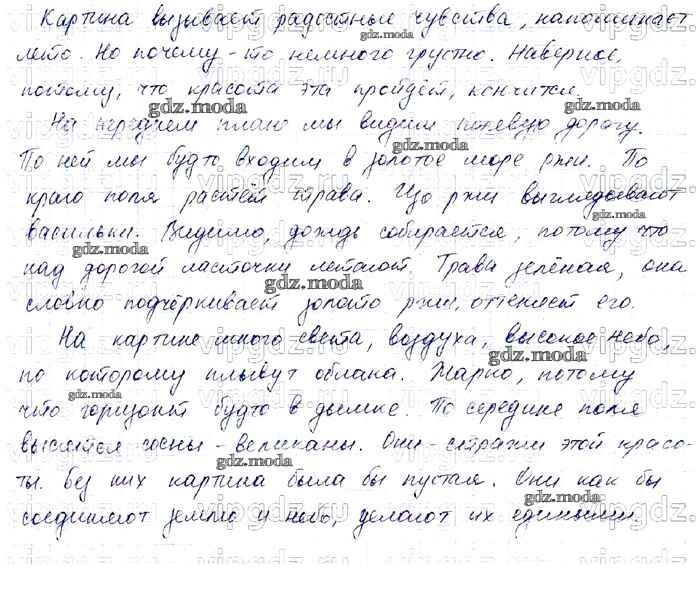 Картина вызывает радостные чувства, напоминает
лето. Но почему-то немного грустно. Наверное,
потому, что красота эта пройдёт, кончится.
На переднем плане мы видим полевую дорогу.
По ней мы будто входим в золотое море ржи. По
краю поля растёт трава. Изо ржи выглядывают
васильки. Видимо, дождь собирается, потому что
над дорогой ласточки летают. Трава зелёная, она
словно подчёркивает золото ржи, оттеняет его.
На картине много света, воздуха, высокое небо,
по которому плывут облака. Жарко, потому
что горизонт будто в дымке. По середине поля
высятся сосны - великаны. Они - стражи этой красо-
ты. Без них картина была бы пустая. Они как бы
соединяют землю и небо, делают их едиными.
gdz.moda
gdz.moda
gdz.moda
gdz.moda
gdz.moda
gdz.moda
gdz.moda
gdz.moda
gdz.moda
gdz.moda
gdz.moda
vipgdz.ru